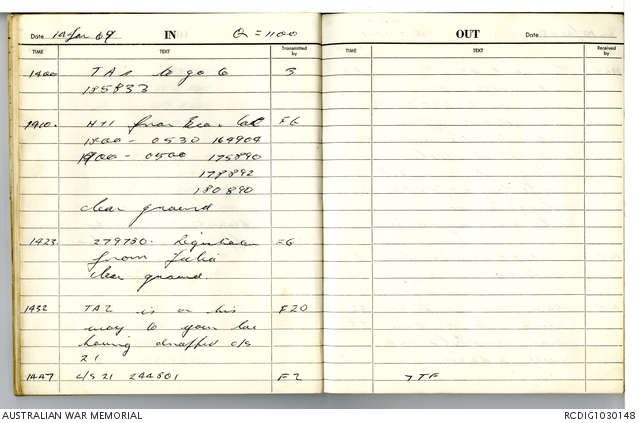 Date 14 Jan 69 IN Q = 1100
TIME TEXT Transmitted by
1400 TA2 to go to 5
185833
1410. H&I from Bear Cat FG
1800 - 0530 164904
1900 - 0500 175890
178892
180890
clear ground
1423. 279730. Registration FG
from Julia
clear ground.
1432 TA2 is on his F20
way to your loc
having dropped c/s
21
1447 c/s 21 244501 F2
OUT Date
TIME TEXT Received by
7TF
AUSTRALIAN WAR MEMORIAL
RCDIG1030148